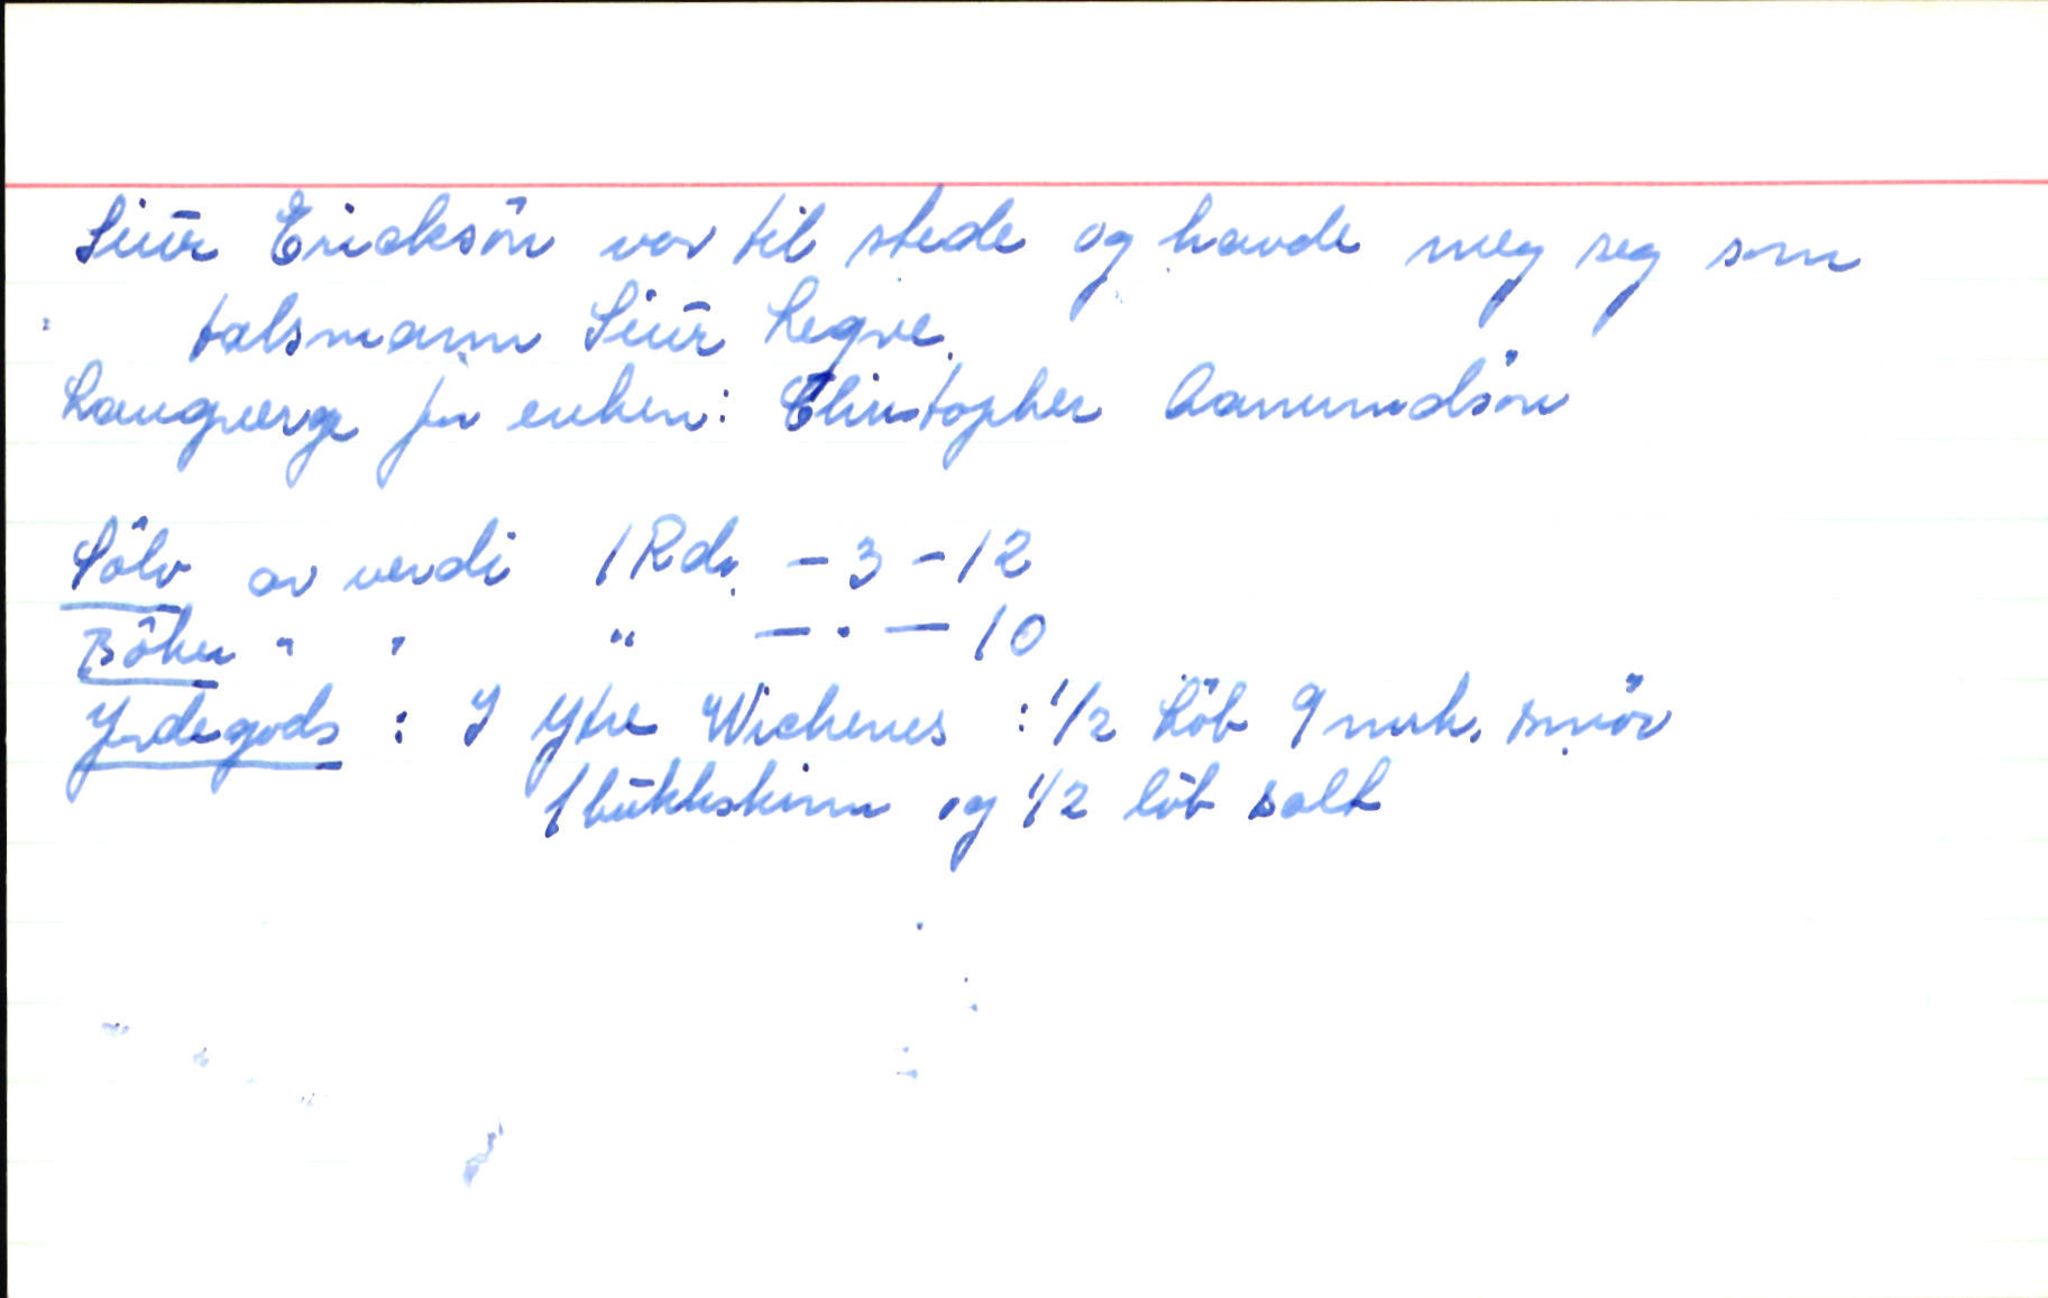 Siur Ericksön var til stede og havde meg seg som
talsmann Siur Legve.
Laugverge for enken: Christopher Aamundsön
Sölv av verdi 1 Rdr. - 3 - 12
Böker " " " - . - 10
Jordegods : I Ytre Wichenes : 1/2 Löb 9 mrk. smör
1 bukkskinn og 1/2 löb salt